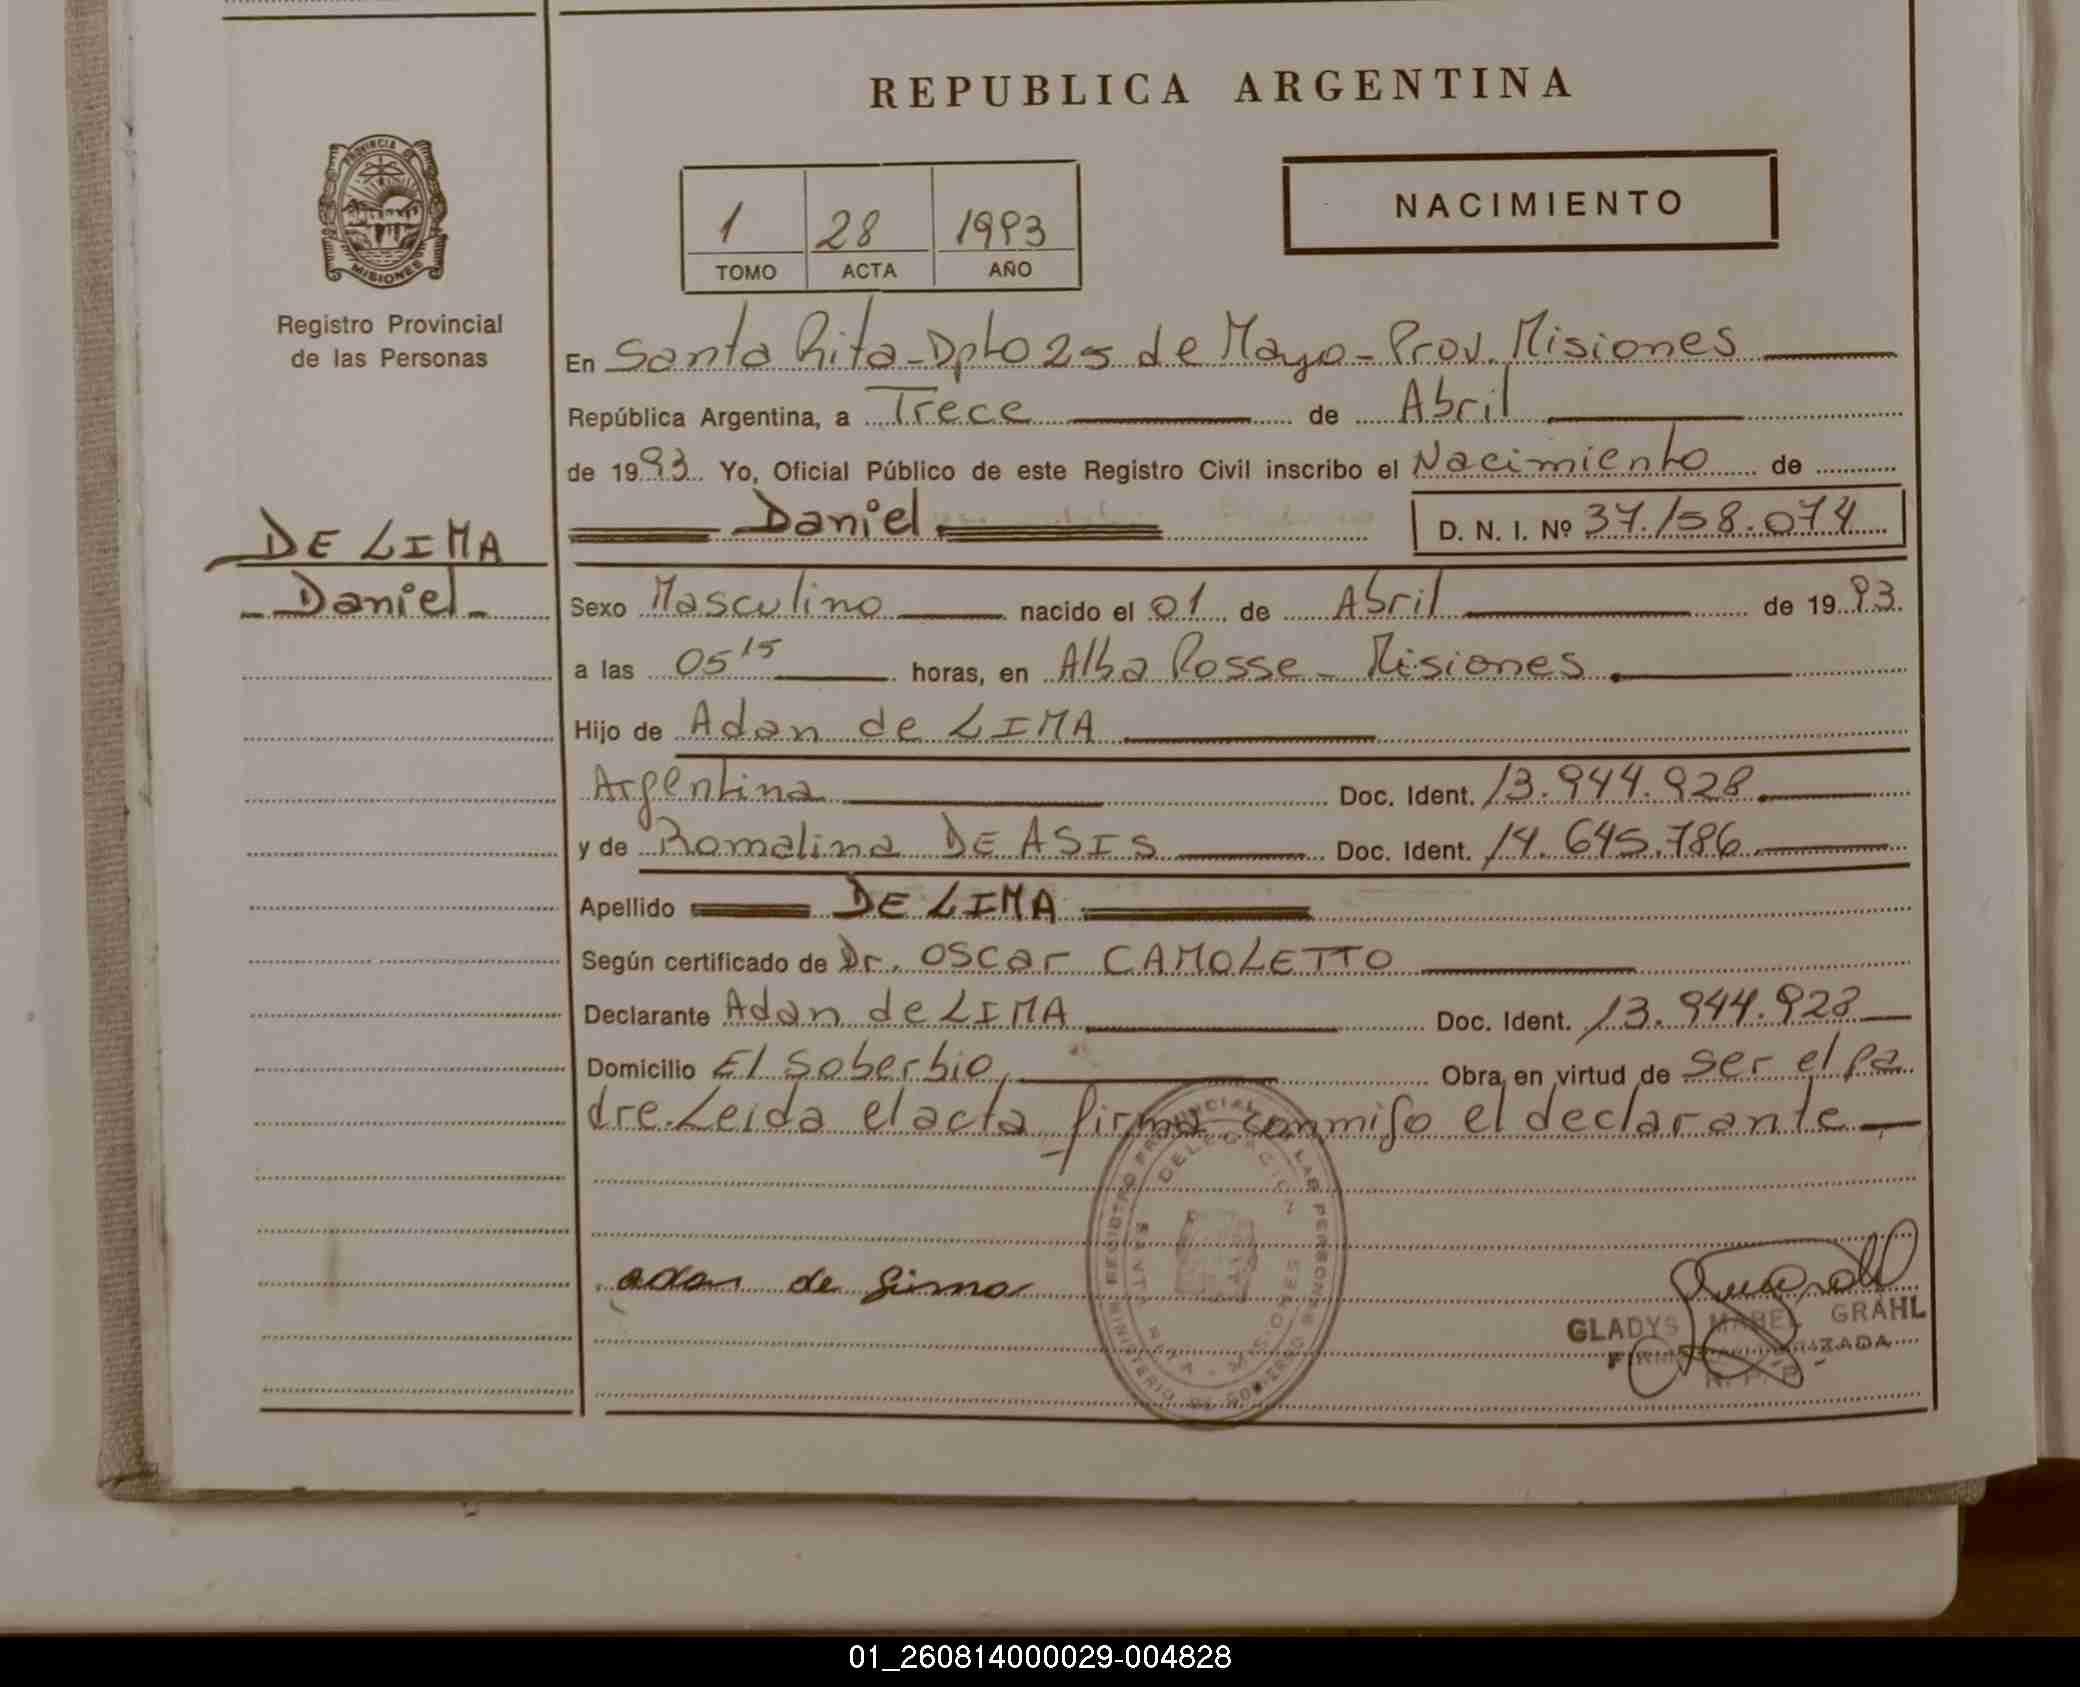 REPUBLICA ARGENTINA
PROVINCIA DE
MISIONES
Registro Provincial
de las Personas
1 28 1993
TOMO ACTA AÑO
NACIMIENTO
En Santa Rita - Dpto 25 de Mayo - Prov. Misiones
República Argentina, a Trece de Abril
de 1993 Yo, Oficial Público de este Registro Civil inscribo el Nacimiento de
Daniel D. N. I. Nº 37.158.074
DE LIMA
- Daniel -
Sexo Masculino nacido el 01 de Abril de 1993.
a las 05 15 horas, en Alba Posse - Misiones.
Hijo de Adan de LIMA
Argentina Doc. Ident. 13.944.928.
y de Romalina DE ASIS Doc. Ident. 14.645.786
Apellido DE LIMA
Según certificado de Dr. Oscar CAMOLETTO
Declarante Adan de LIMA Doc. Ident. 13.944.928
Domicilio El Soberbio, Obra en virtud de ser el pa
dre. Leida el acta firma conmigo el declarante
MINISTERIO DE GOBIERNO REGISTRO PROVINCIAL DE LAS PERSONAS
DELEGACION
SANTA RITA - MISIONES
adan de Lima
GLADYS MABEL GRAHL
FIRMA AUTORIZADA
R. P. P.
01_260814000029-004828